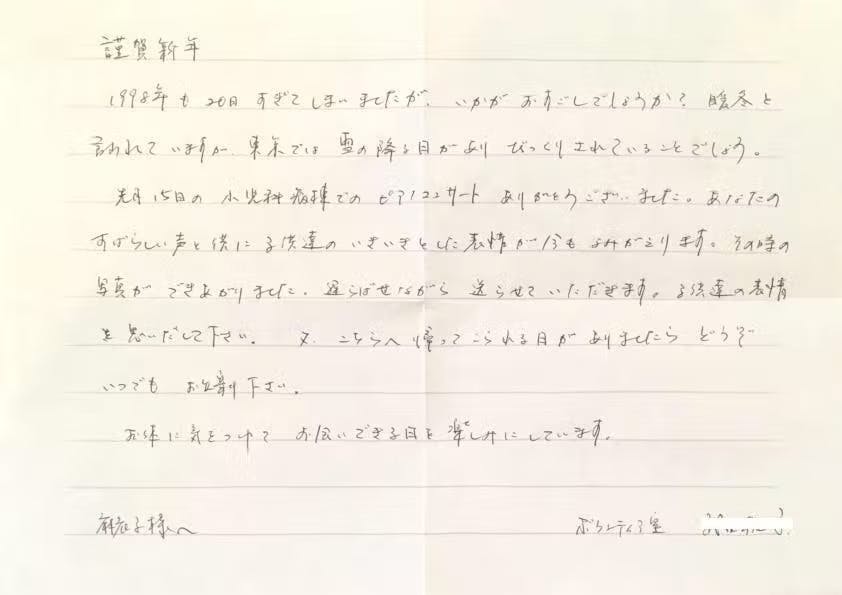 謹賀新年
1998年も20日すぎてしまいましたが、いかがおすごしでしょうか？暖冬と
言われていますが、東京では雪の降る日がありびっくりされていることでしょう。
先月15日の小児科病棟でのピアノコンサートありがとうございました。あなたの
すばらしい声と供に子供達のいきいきとした表情が今もよみがえります。その時の
写真ができあがりました。遅らばせながら送らせていただきます。子供達の表情
を思いだして下さい。又、こちらへ帰ってこられる日がありましたらどうぞ
いつでもお立寄り下さい。
お体に気をつけてお会いできる日を楽しみにしています。
麻衣子様へ
ボランティア室